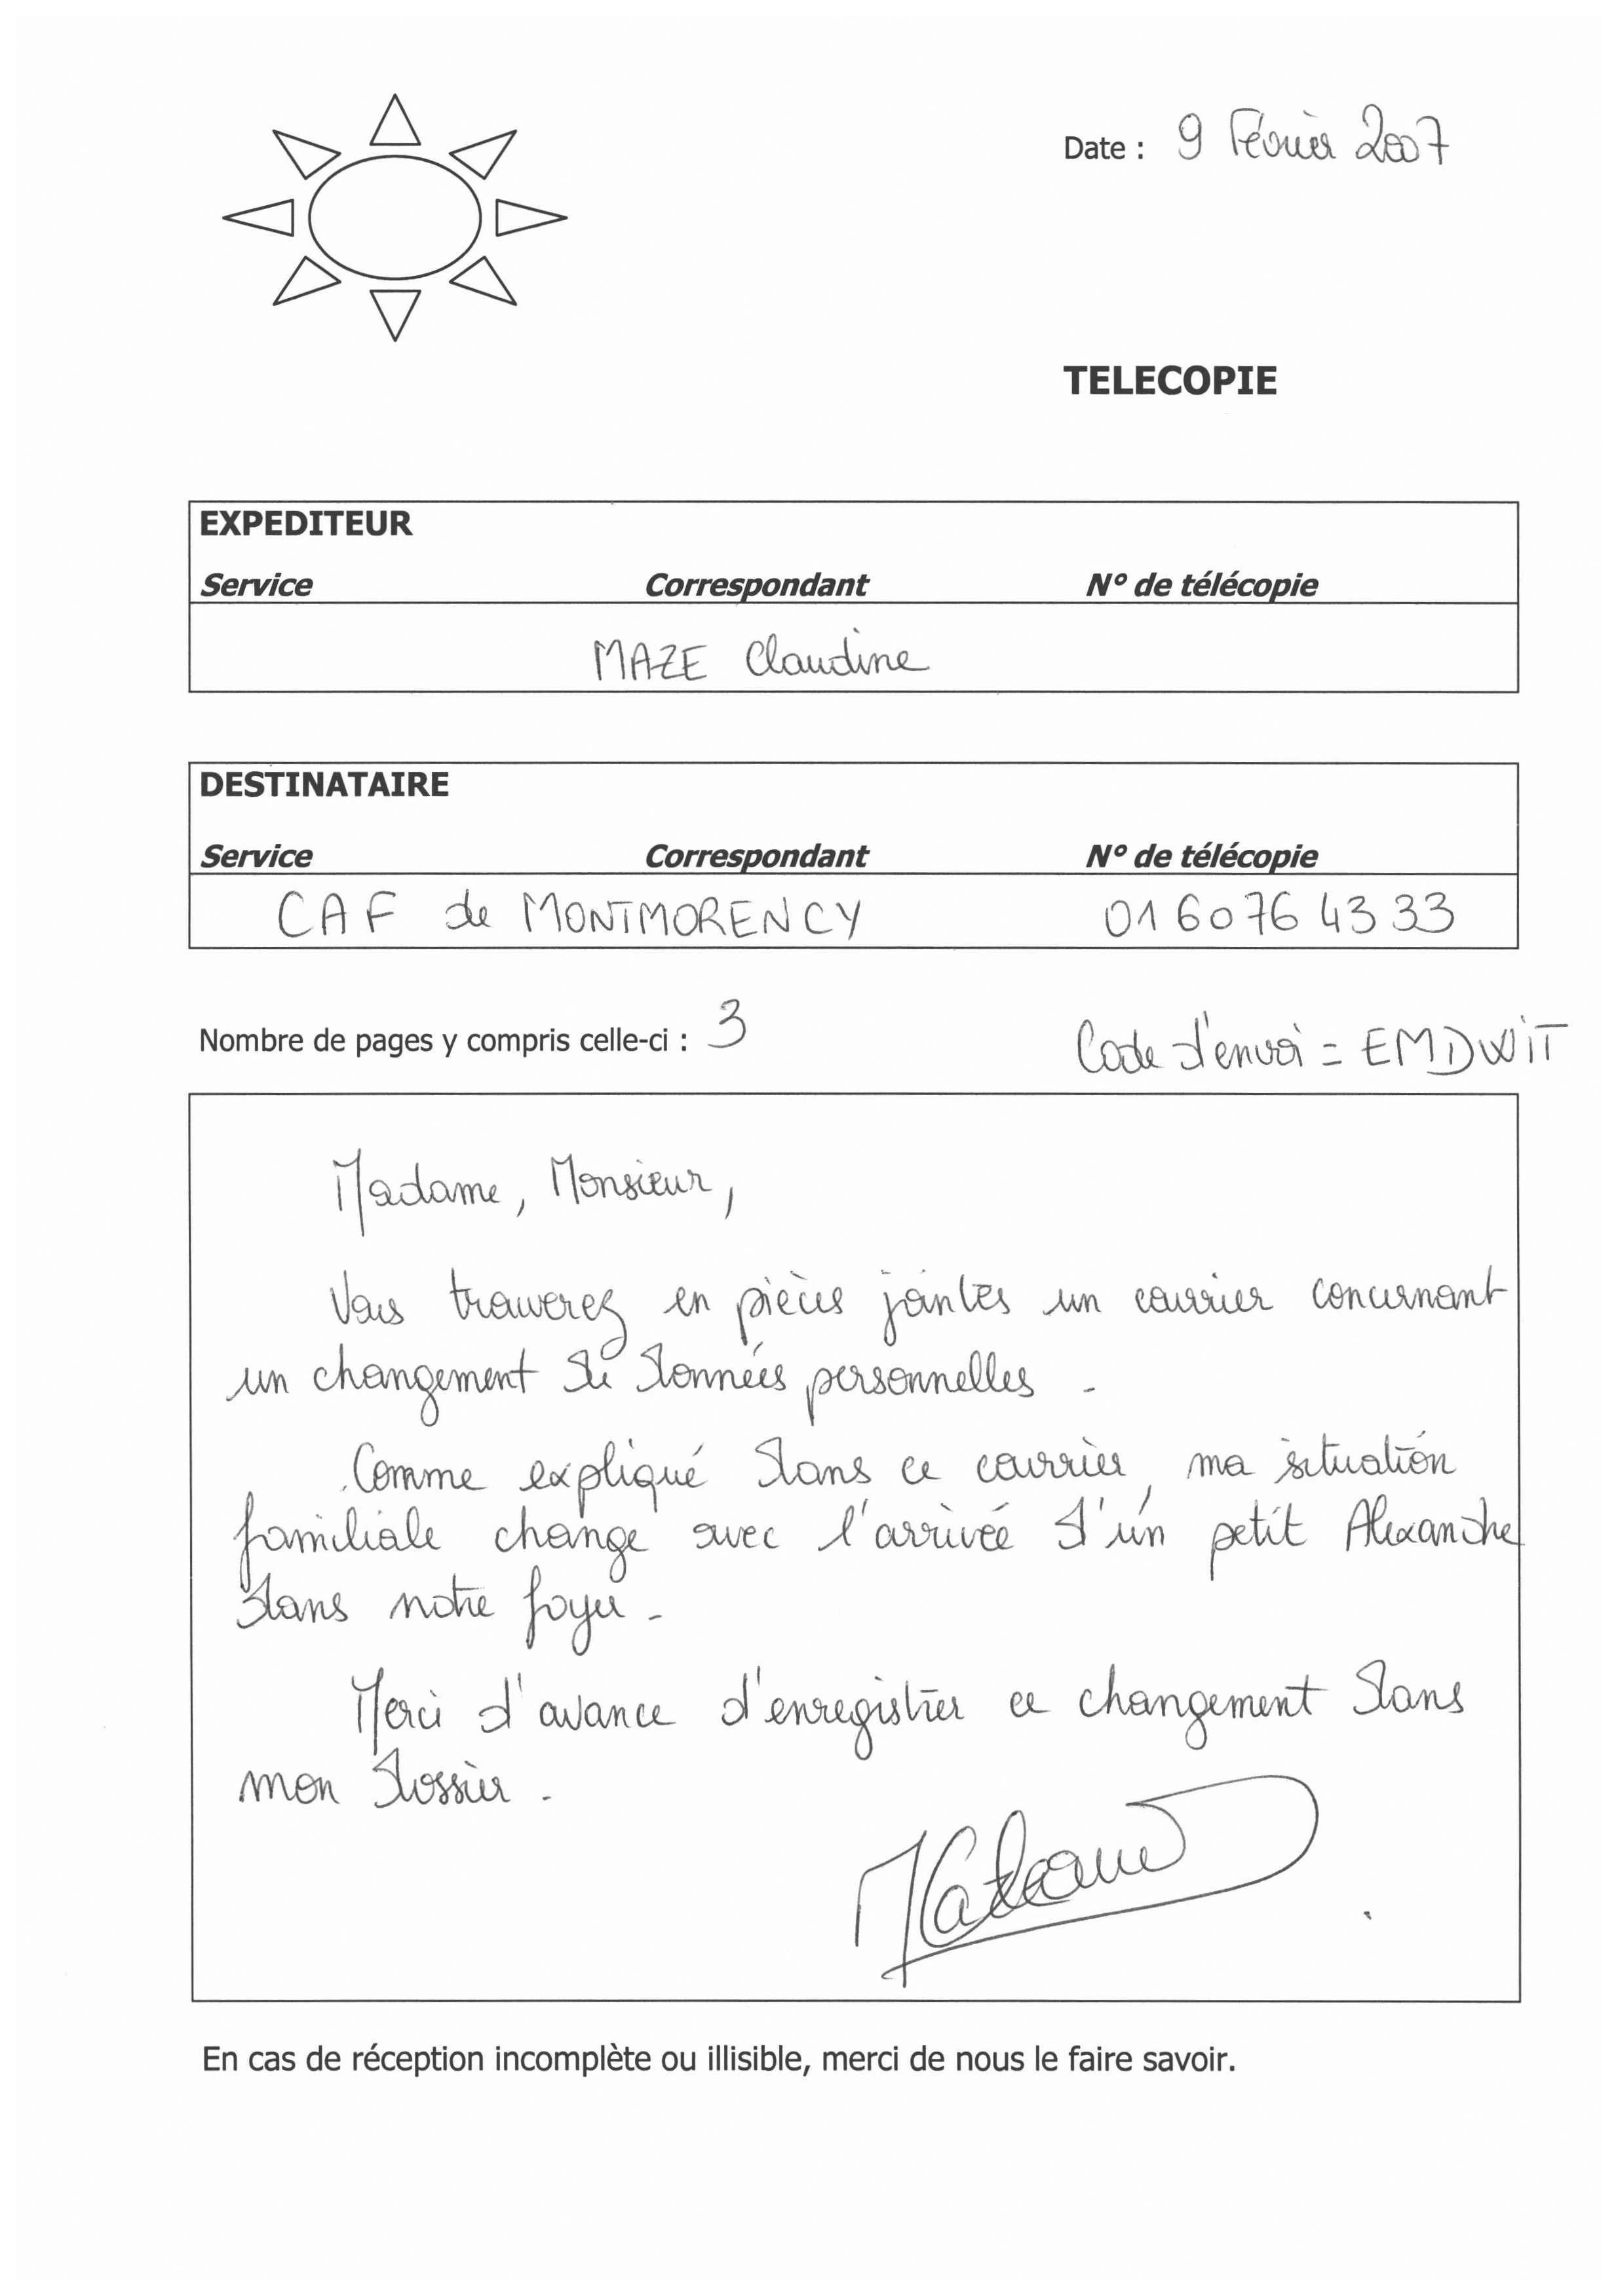 Date : 9 Février 2007
TELECOPIE
EXPEDITEUR
Service Correspondant N° de télécopie
MAZE Claudine
DESTINATAIRE
Service Correspondant N° de télécopie
CAF de MONTMORENCY 01 60 76 43 33
Nombre de pages y compris celle-ci : 3
Code d'envoi = EMDWIT
Madame, Monsieur,
Vous trouverez en pièces jointes un courrier concernant
un changement de données personnelles.
Comme expliqué dans ce courrier, ma situation
familiale change avec l'arrivée d'un petit Alexandre
dans notre foyer.
Merci d'avance d'enregistrer ce changement dans
mon dossier.
En cas de réception incomplète ou illisible, merci de nous le faire savoir.